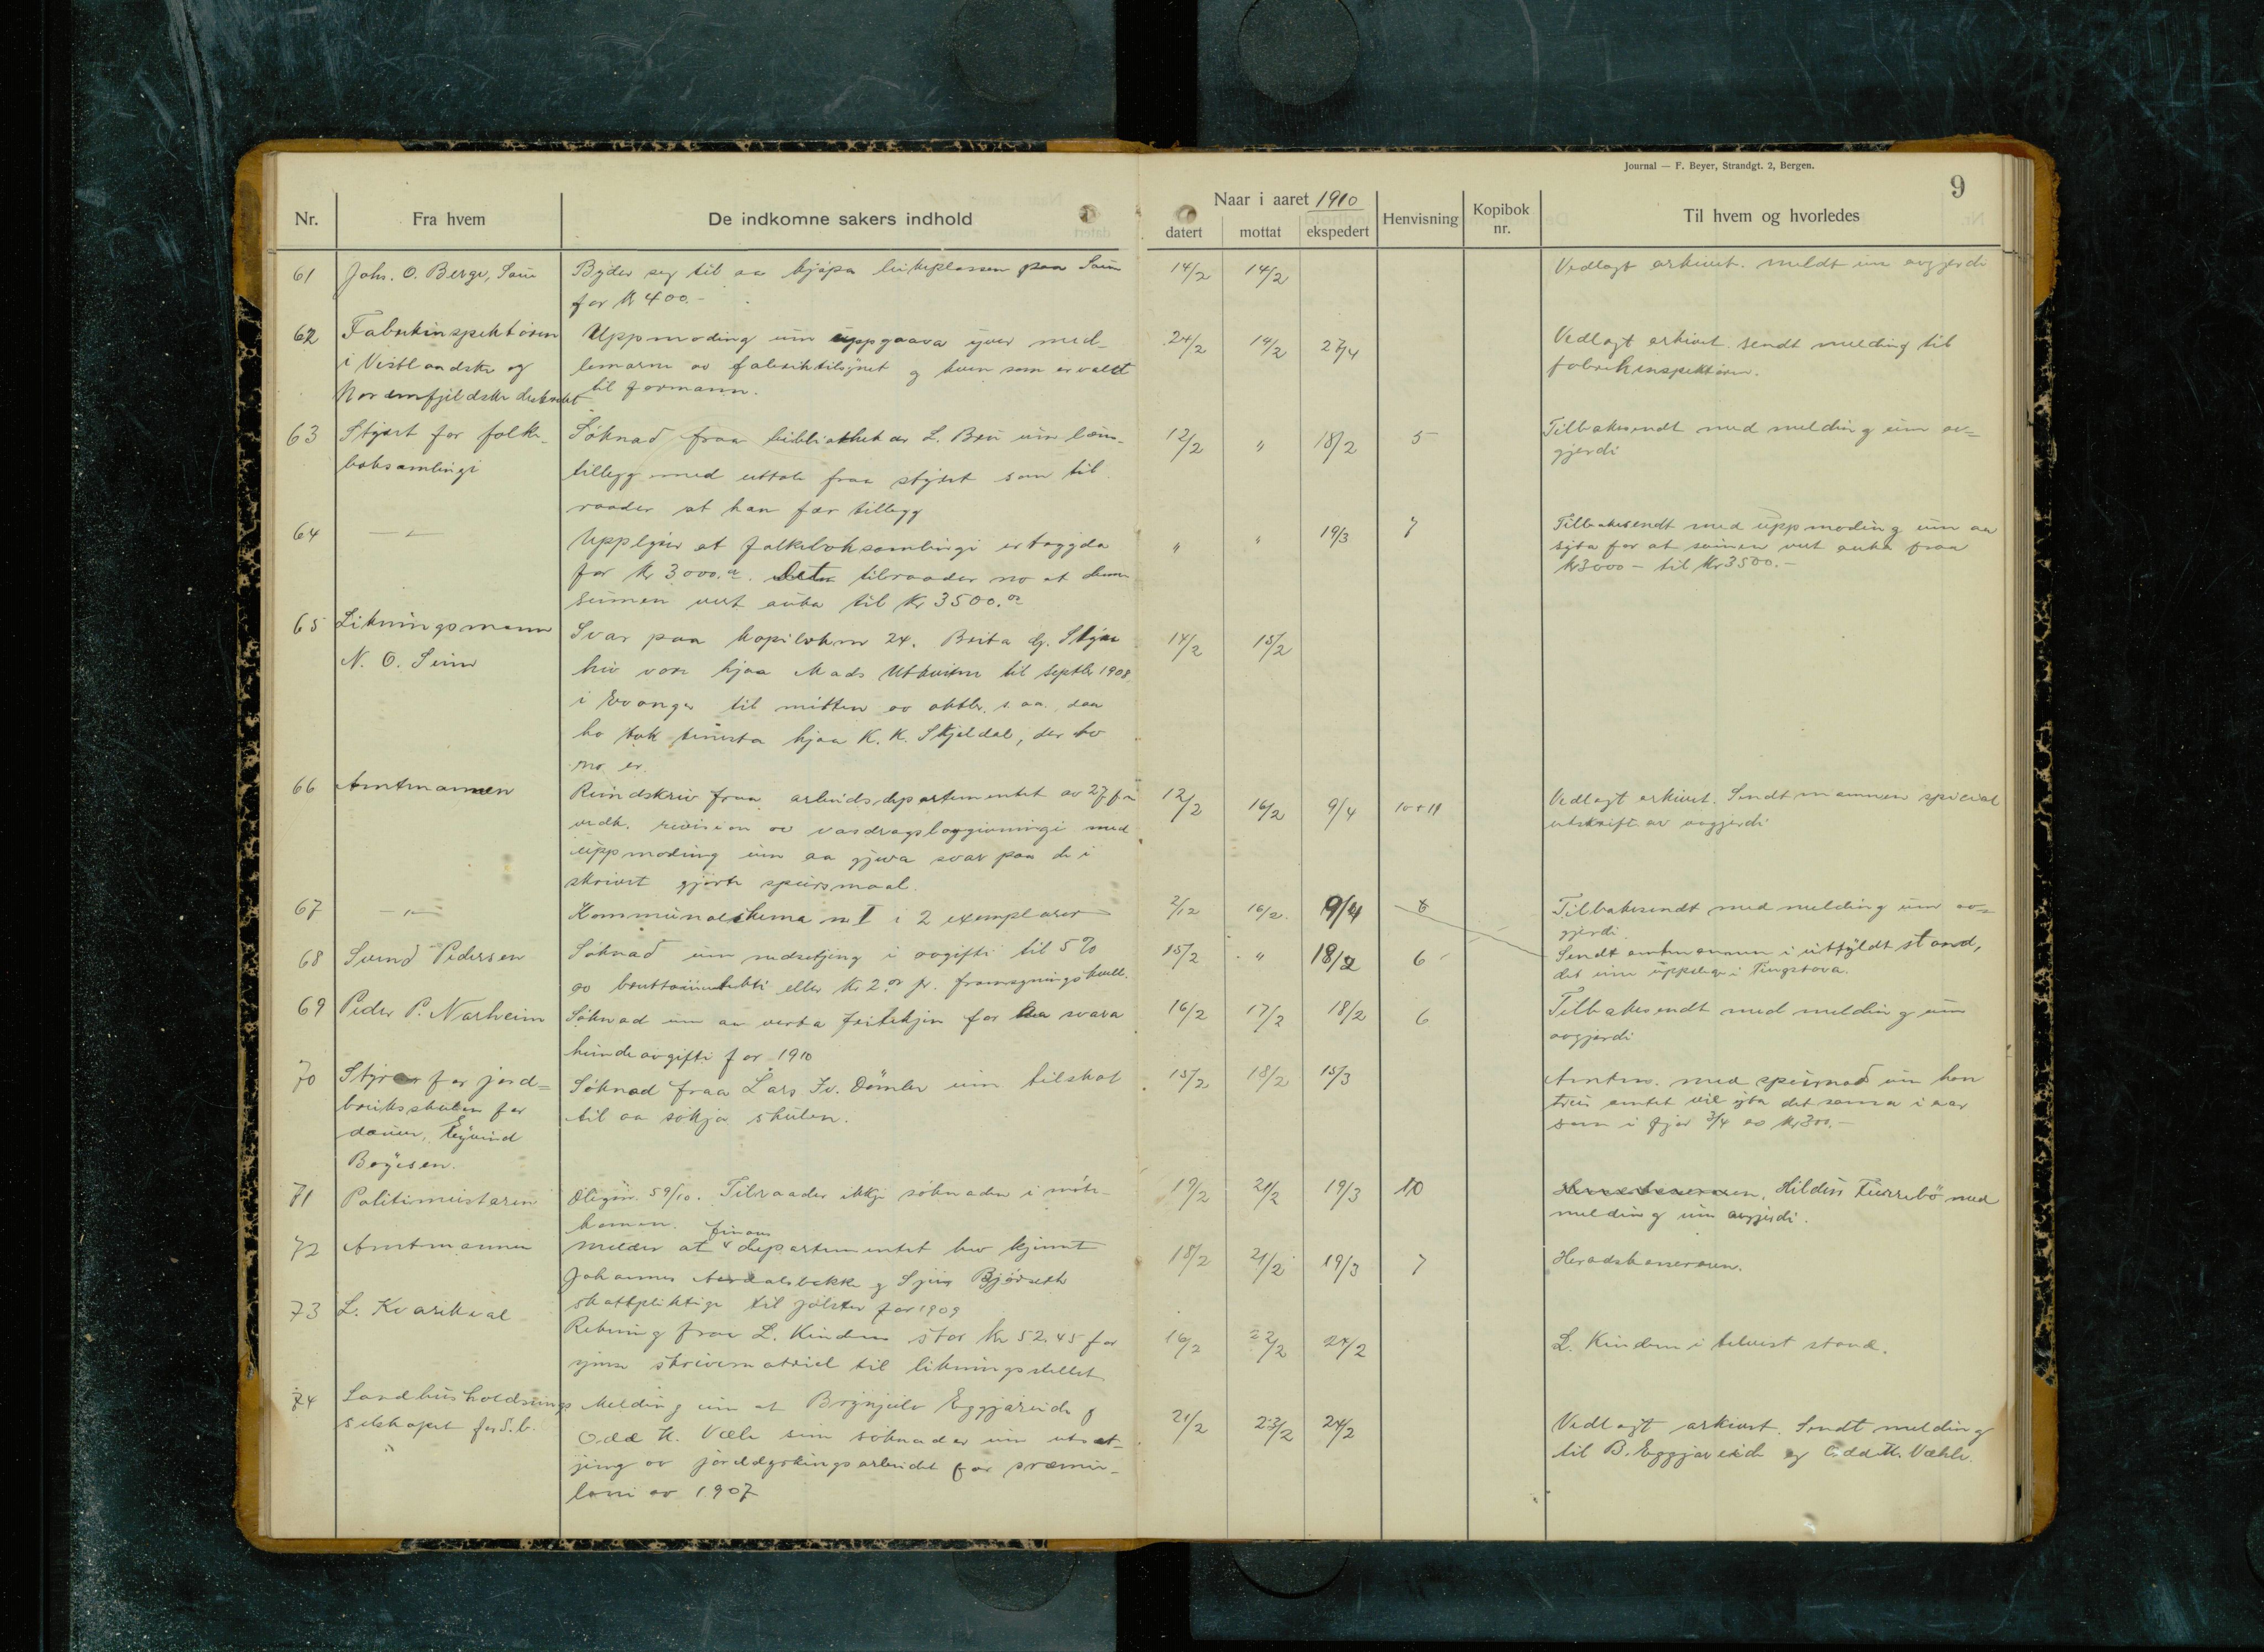 Journal — F. Beyer, Strandgt. 2, Bergen.
9
Nr. Fra hvem De indkomne sakers indhold Naar i aaret 1910 datert mottat ekspedert Henvisning Kopibok nr. Til hvem og hvorledes
61 Johs. O. Berge, Byder seg til aa kjøpa paa 14/2 14/2 Vedlagt arkivet. meldt um avgjerdi
for Kr 400.-
62 Fabrikinspektøren Uppmoding um uppgaava yver med- 24/2 14/2 27/4 Vedlagt arkivet. sendt melding til
i Vestlandske og lemarne av fabriktilsynet og kven som er valdt fabrikinspektøren.
Nordenfjeldske distrikt til formann.
63 Styret for folke- Søknad fraa bibliothekar L. Bru um løns- 12/2 " 18/2 5 Tilbakesendt med melding um av-
boksamlingi tillegg med uttale fraa styret som til gjerdi
raader at han fær tillegg
64 — " — Upplyser at folkeboksamlingi er tryggda " " 19/3 7 Tilbakesendt med uppmoding um aa
for Kr 3000.00. tilraader no at denne syta for at sumen vert auka fraa
sumen vert auka til Kr 3500.00 Kr 3000 – til Kr 3500.–
65 Likningsmann Svar paa kopibok nr 24. Brita 14/2 15/2
N. O. Seim hev vore hjaa Mads til septbr 1908
i Evanger til mitten av oktbr. s. aa. daa
ho tok tenesta hjaa K. K. Skjeldal, der ho
no er.
66 Amtmannen Rundskriv fraa arbeidsdepartementet av 27 12/2 16/2 9/4 10+11 Vedlagt arkivet. Sendt special
vedk. revision av vasdragsloggivningi med utskrift av avgjerdi
uppmoding um aa gjeva svar paa de i
skrivet gjorte spursmaal.
67 — " — Kommunalskema nr I i 2 exemplarer 2/12 16/2. 9/4 8 Tilbakesendt med melding um av-
gjerdi
68 Svend Pedersen Søknad um nedsetjing i avgifti til 5% 15/2 " 18/2 6 Sendt amtmannen i utfyldt stand,
av eller Kr 2.00 pr. framsyningskveld. det um i Tingstova.
69 Peder P. Narheim Søknad um aa verta fritekjen for aa svara 16/2 17/2 18/2 6 Tilbakesendt med melding um
hundeavgifti for 1910 avgjerdi
70 Styrar for jord- Søknad fraa Lars Iv. Dømler um tilskot 15/2 18/2 15/3 Amtm. med spursmaal um han
bruksskulen for til aa søkja skulen. amtet vil yta det sama i aar
Eyvind som i fjor 3/4 av Kr 300.–
Boyesen.
71 Politimeistaren 59/10. Tilraader ikkje søknaden i møte- 19/2 21/2 19/3 10 Hildus Furrebø med
komen. melding um avgjerdi.
72 Amtmannen Melder at finansdepartementet hev kjennt 18/2 21/2 19/3 7 Heradskasseraren.
Johannes og Sjur
skattpliktige til Jølster for 1909
73 L. Rekning fraa L. Kindem stor Kr 52.45 for 16/2 22/2 24/2 L. Kindem i stand.
ymse skrivemateriel til likningsstellet
74 Landhusholdnings Melding um at Brynjulv Eggjareide og 21/2 23/2 24/2 Vedlagt arkivet. Sendt melding
selskapet for S. b. Odd K. Væle sine søknader um utset- til B. Eggjareide og Odd K. Væhle.
jing av jorddyrkingsarbeidet for præmie-
laani av 1907